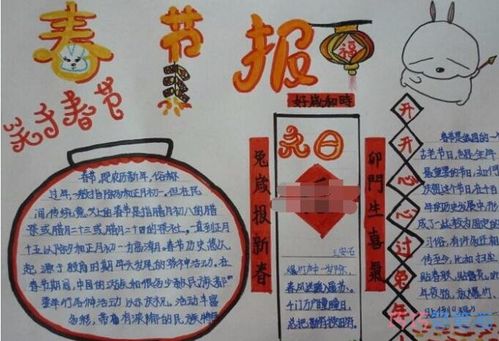 春节报
关于春节
春节,即农历新年,俗称
过年,一般指除夕和正月初一。但在民
间,传统意义上的春节是指腊月初八的腊
祭或腊月二十三或腊月二十四的祭灶,一直到正月
十五,以除夕和正月初一为高潮。春节历史悠久,
起源于殷商时期年头岁尾的祭神活动。在
春节期间,中国的汉族和很多少数民族都
要举行各种活动以示庆祝。活动丰富
多彩,带有浓郁的民族特色
好歲如時
兔歲报新春
卯門生喜氣
元日
王安石
爆竹声中一岁除,
春风送暖入屠苏。
千门万户曈曈日,
总把新桃换旧符。
福
开开心心过兔年
春节是我国的一个
古老节日,也是全年
最重要的
庆祝这个节日,在千百
年的历史发展中,形
成了一些较为固定的
习俗,有许多还相
传至今,比如扫尘
贴春联,
年夜饭,放爆竹,